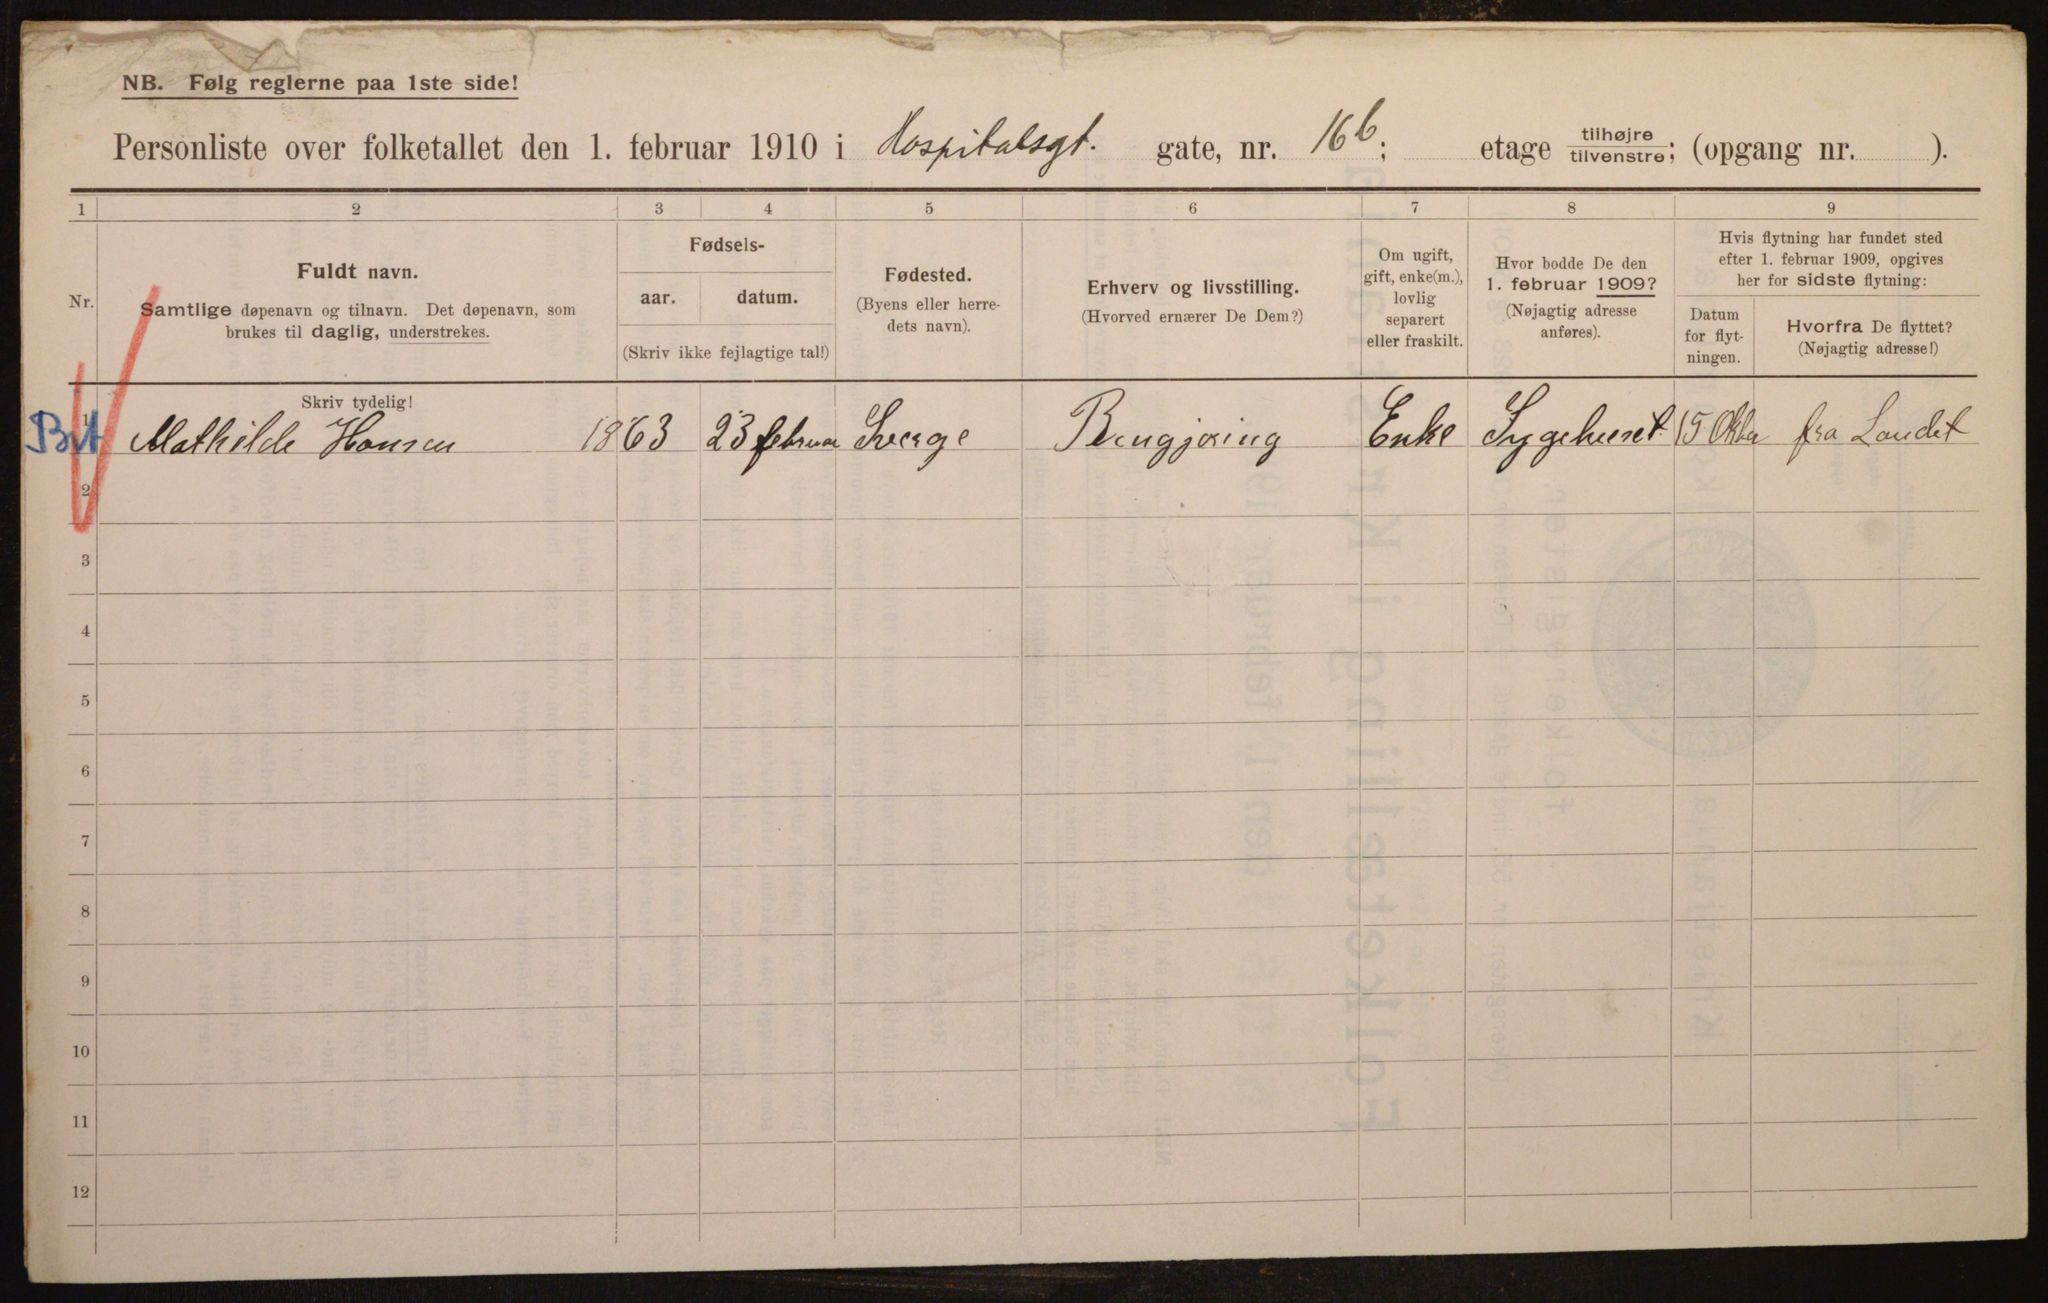 NB. Følg reglerne paa 1ste side!
Personliste over folketallet den 1. februar 1910 i Hospitalsgt. gate, nr. 16 b; etage tilhøjre tilvenstre; (opgang nr. ).
1 2 3 4 5 6 7 8 9
Nr.
Fuldt navn.
Samtlige døpenavn og tilnavn. Det døpenavn, som
brukes til daglig, understrekes.
Fødsels-
aar. datum.
(Skriv ikke fejlagtige tal!)
Fødested.
(Byens eller herre-
dets navn).
Erhverv og livsstilling.
(Hvorved ernærer De Dem?)
Om ugift,
gift, enke(m.),
lovlig
separert
eller fraskilt.
Hvor bodde De den
1. februar 1909?
(Nøjagtig adresse
anføres).
Hvis flytning har fundet sted
efter 1. februar 1909, opgives
her for sidste flytning:
Datum
for flyt-
ningen.
Hvorfra De flyttet?
(Nøjagtig adresse!)
Skriv tydelig!
1 Mathilde Hansen 1863 23 februar Sverge Rengjøring Enke Sygehuset 15 Oktbr fra Landet
2
3
4
5
6
7
8
9
10
11
12